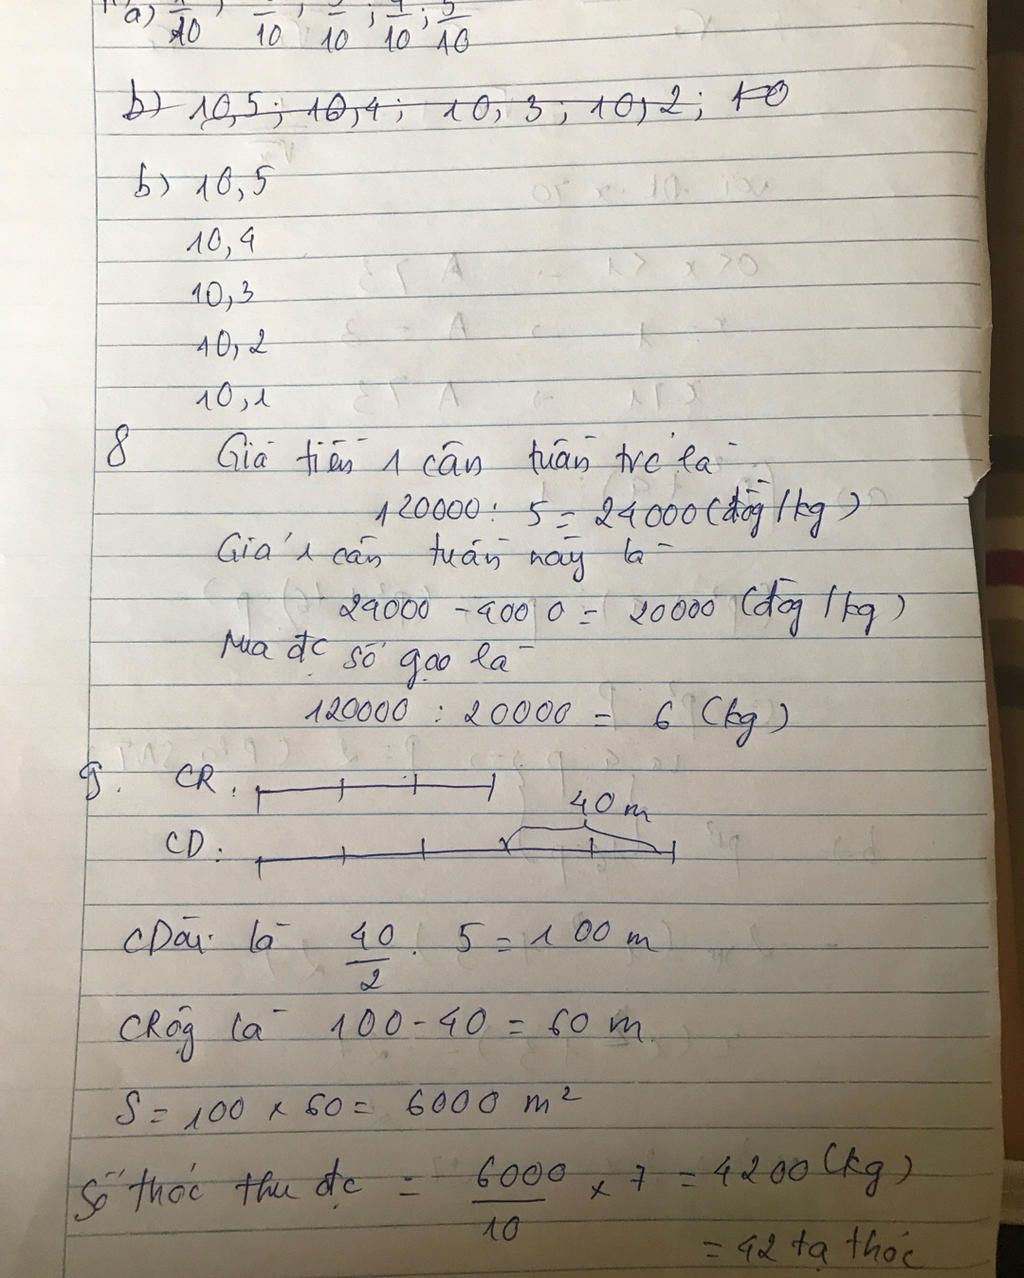 a) 1/10 ; /10 ; 3/10 ; 4/10 ; 5/10
b) 10,5 ; 10,4 ; 10,3 ; 10,2 ; 10
b) 10,5
10,4
10,3
10,2
10,1
8 Giá tiền 1 cân tuần trc là
120000 : 5 = 24000 (đồg/kg)
Giá 1 cân tuần này là
24000 - 4000 = 20000 (đồg/kg)
Mua đc số gạo là
120000 : 20000 = 6 (kg)
9. CR :
40 m
CD :
CDài là 40/2 . 5 = 100 m
CRộg là 100 - 40 = 60 m
S = 100 x 60 = 6000 m²
Số thóc thu đc = 6000/10 x 7 = 4200 (kg)
= 42 tạ thóc